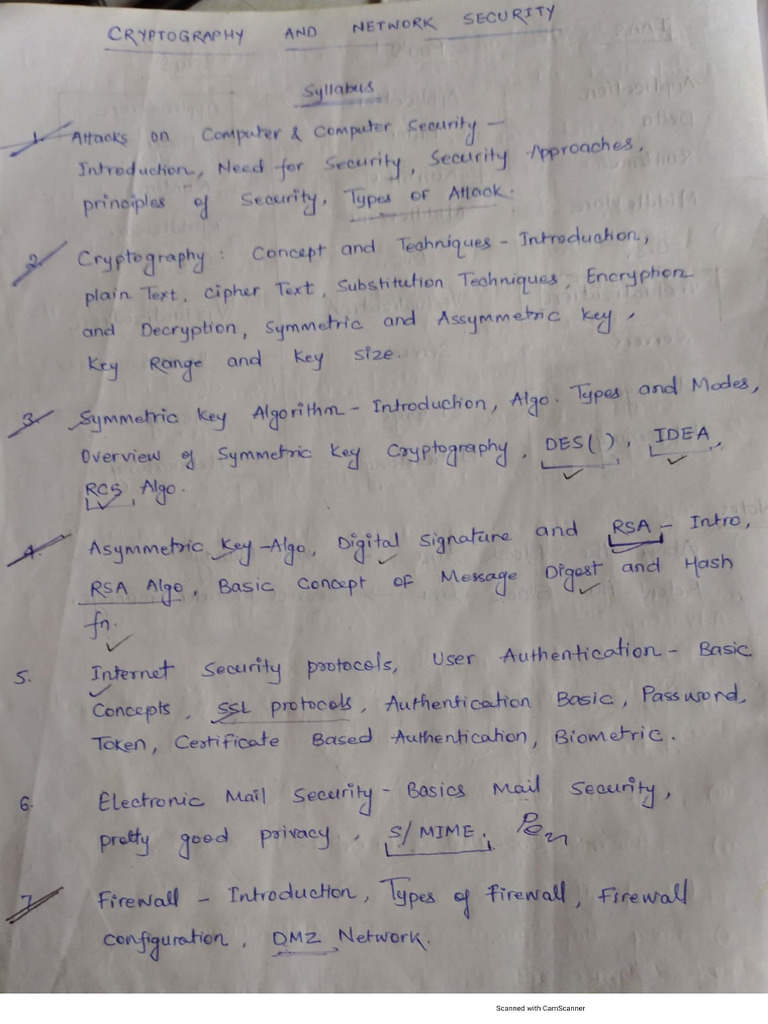 CRYPTOGRAPHY AND NETWORK SECURITY
Syllabus
1. Attacks on Computer & Computer Security –
Introduction, Need for Security, Security Approaches,
principles of Security, Types of Attack.
2. Cryptography : Concept and Techniques - Introduction,
plain Text, Cipher Text, Substitution Techniques, Encryption
and Decryption, Symmetric and Assymmetric Key,
Key Range and Key Size.
3. Symmetric Key Algorithm - Introduction, Algo. Types and Modes,
Overview of Symmetric Key Cryptography, DES( ), IDEA,
RC5, Algo.
4. Asymmetric Key-Algo, Digital Signature and RSA - Intro,
RSA Algo, Basic Concept of Message Digest and Hash
fn.
5. Internet Security protocols, User Authentication - Basic
Concepts, SSL protocols, Authentication Basic, Password,
Token, Certificate Based Authentication, Biometric.
6. Electronic Mail Security - Basics Mail Security,
pretty good privacy, S/MIME.
7. Firewall - Introduction, Types of Firewall, Firewall
Configuration, DMZ Network.
Scanned with CamScanner